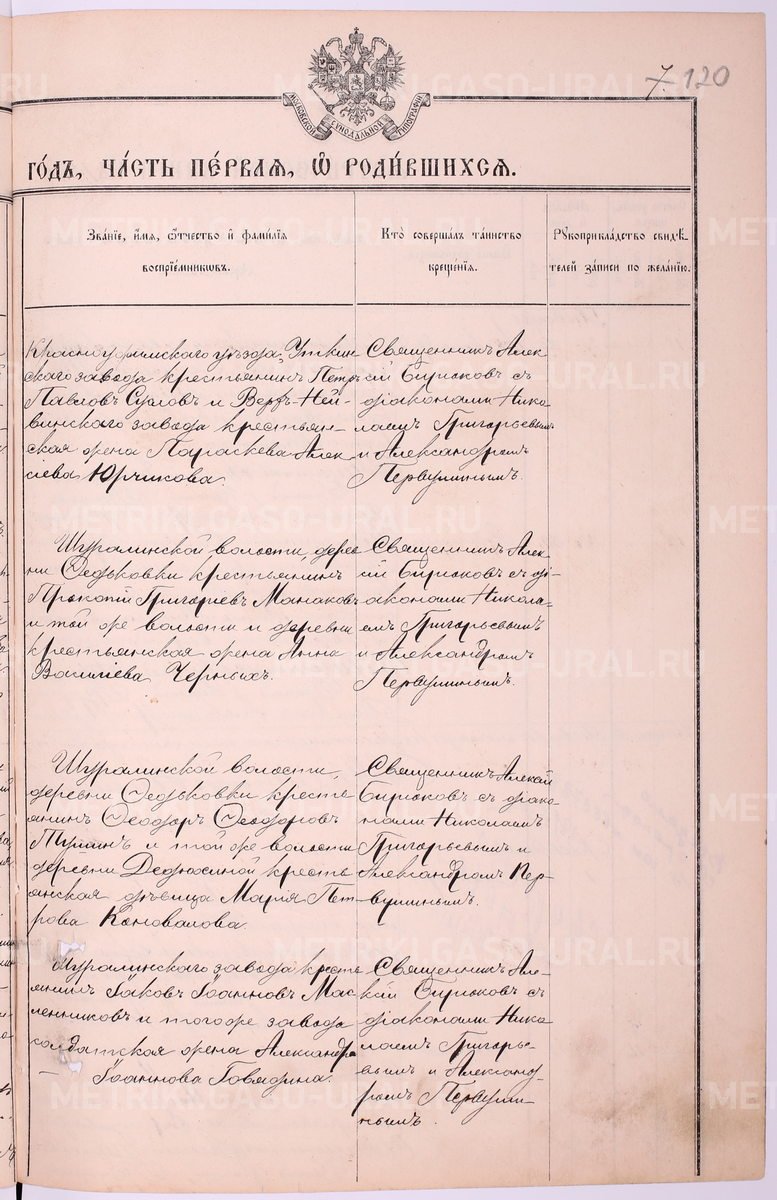 7. 120
МОСКОВСКОЙ СѴНОДАЛЬНОЙ ТИПОГРАФІИ
го́дъ, ча́сть пе́рваѧ, ѡ҆ роди́вшихсѧ.
Зва́нїе, и҆́мѧ, ѻ҆́тчество и҆ фами́лїѧ
воспрїе́мникѡвъ.
Кто̀ соверша́лъ та́инство
креще́нїѧ.
Рꙋкоприкла́дство свидѣ́-
телей за́писи по жела́нїю.
Красноуфимскаго уѣзда, Уткин-
скаго завода крестьянинъ Петръ
Павловъ Суслов и Верхъ-Ней-
винскаго завода крестьян-
ская жена Параскева Алек-
сіева Юрчикова.
Священникъ Алек-
сій Бирюковъ съ
діаконами Нико-
лаемъ Григорьевымъ
и Александромъ
Первушинымъ.
Шуралинской волости, дерев-
ни Ѳедьковки крестьянинъ
Прокопій Григоріевъ Манаковъ
и той же волости и деревни
крестьянская жена Анна
Васильева Черныхъ.
Священникъ Алек-
сій Бирюковъ съ ді-
аконами Никола-
емъ Григорьевымъ
и Александромъ
Первушинымъ.
Шуралинской волости,
деревни Ѳедьковки кресть-
янинъ Ѳеодоръ Ѳеодоровъ
и той же волости
деревни Дедюхиной кресть-
янская дѣвица Марія Пет-
рова Коновалова.
Священникъ Алексій
Бирюковъ съ діако-
нами Николаемъ
Григорьевымъ и
Александромъ Пер-
вушинымъ.
Шуралинскаго завода кресть-
янинъ Іаковъ Іоанновъ Мас-
ленниковъ и того же завода
солдатская жена Александра
Іоаннова Говядина.
Священникъ Але-
ксій Бирюковъ съ
діаконами Нико-
лаемъ Григорье-
вымъ и Александ-
ромъ Первуши-
нымъ.
METRIKI.GASO-URAL.RU